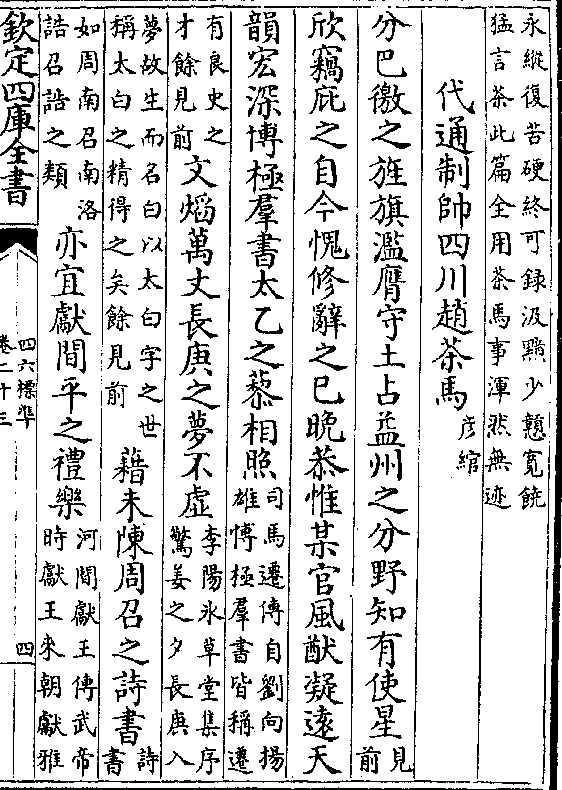 永縱復苦硬終可録汲黯少戆寛饒
猛言茶此篇全用茶馬事渾然無迹
代通制帥四川趙茶馬彦綰
分巴徼之旌旗濫膺守土占益州之分野知有使星見前
欣竊庇之自今愧修辭之已晚恭惟某官風猷凝逺天
韻宏深博極羣書太乙之藜相照司馬遷傳自劉向揚雄博極羣書皆稱遷
有良史之才餘見前文熖萬丈長庚之夢不虚李陽氷草堂集序驚姜之夕長庚入
夢故生而名白以太白字之世稱太白之精得之矣餘見前藉未陳周召之詩書詩書
如周南召南洛誥召誥之類亦宜獻間平之禮樂河間獻王傳武帝時獻王來朝獻雅
欽定四庫全書
四六標準
卷二十三
四